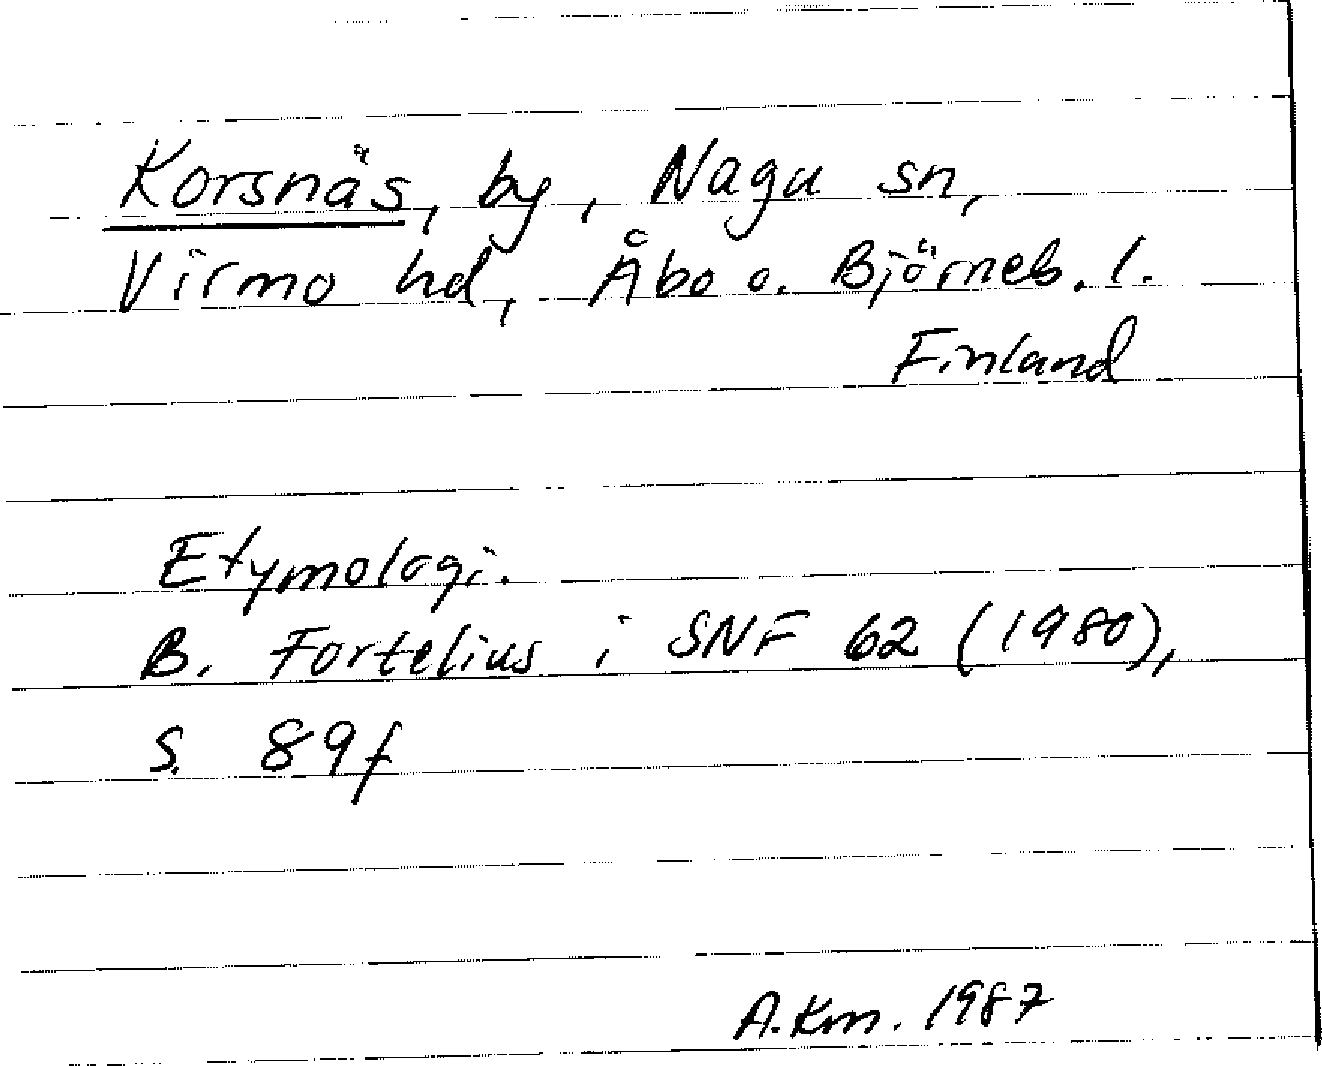 Korsnäs, by, Nagu sn,
Virmo hd, Åbo o. Björneb. l.
Finland
Etymologi.
B. Fortelius i SNF 62 (1980),
s. 89f
A. Km. 1987